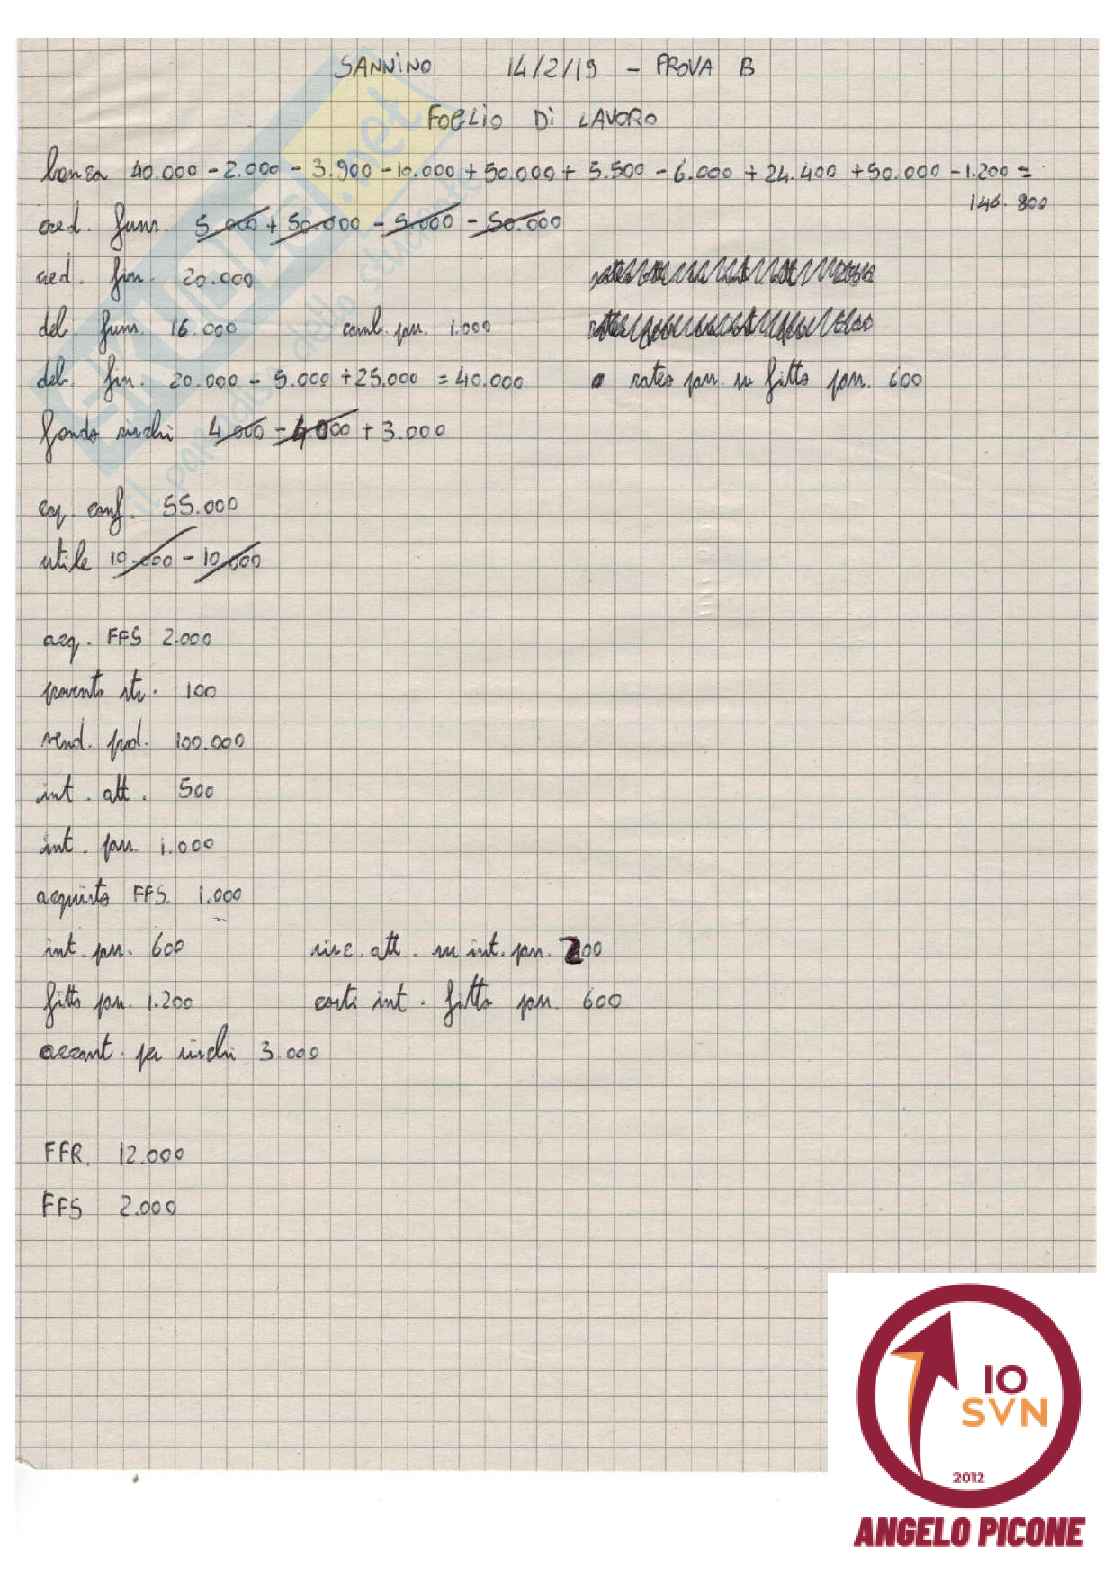 SANNINO 14/2/19 - PROVA B
FOGLIO DI LAVORO
banca 40.000 - 2.000 - 3.900 - 10.000 + 50.000 + 5.500 - 6.000 + 24.400 + 50.000 - 1.200 =
146.800
cred. funz. 5.000 + 50.000 - 5.000 - 50.000
cred. fin. 20.000
deb. funz. 16.000 camb. pass. 1.000
deb. fin. 20.000 - 5.000 + 25.000 = 40.000 rateo pass. su fitto pass. 600
fondo rischi 4.000 - 4.000 + 3.000
cap. conf. 55.000
utile 10.000 - 10.000
acq. FFS 2.000
provento str. 100
vend. prod. 100.000
int. att. 500
int. pass. 1.000
acquisto FFS. 1.000
int. pass. 600 risc. att. su int. pass. 200
fitto pass. 1.200 costi int. fitto pass. 600
accant. per rischi 3.000
FFR. 12.000
FFS 2.000
IO
SVN
2012
ANGELO PICONE